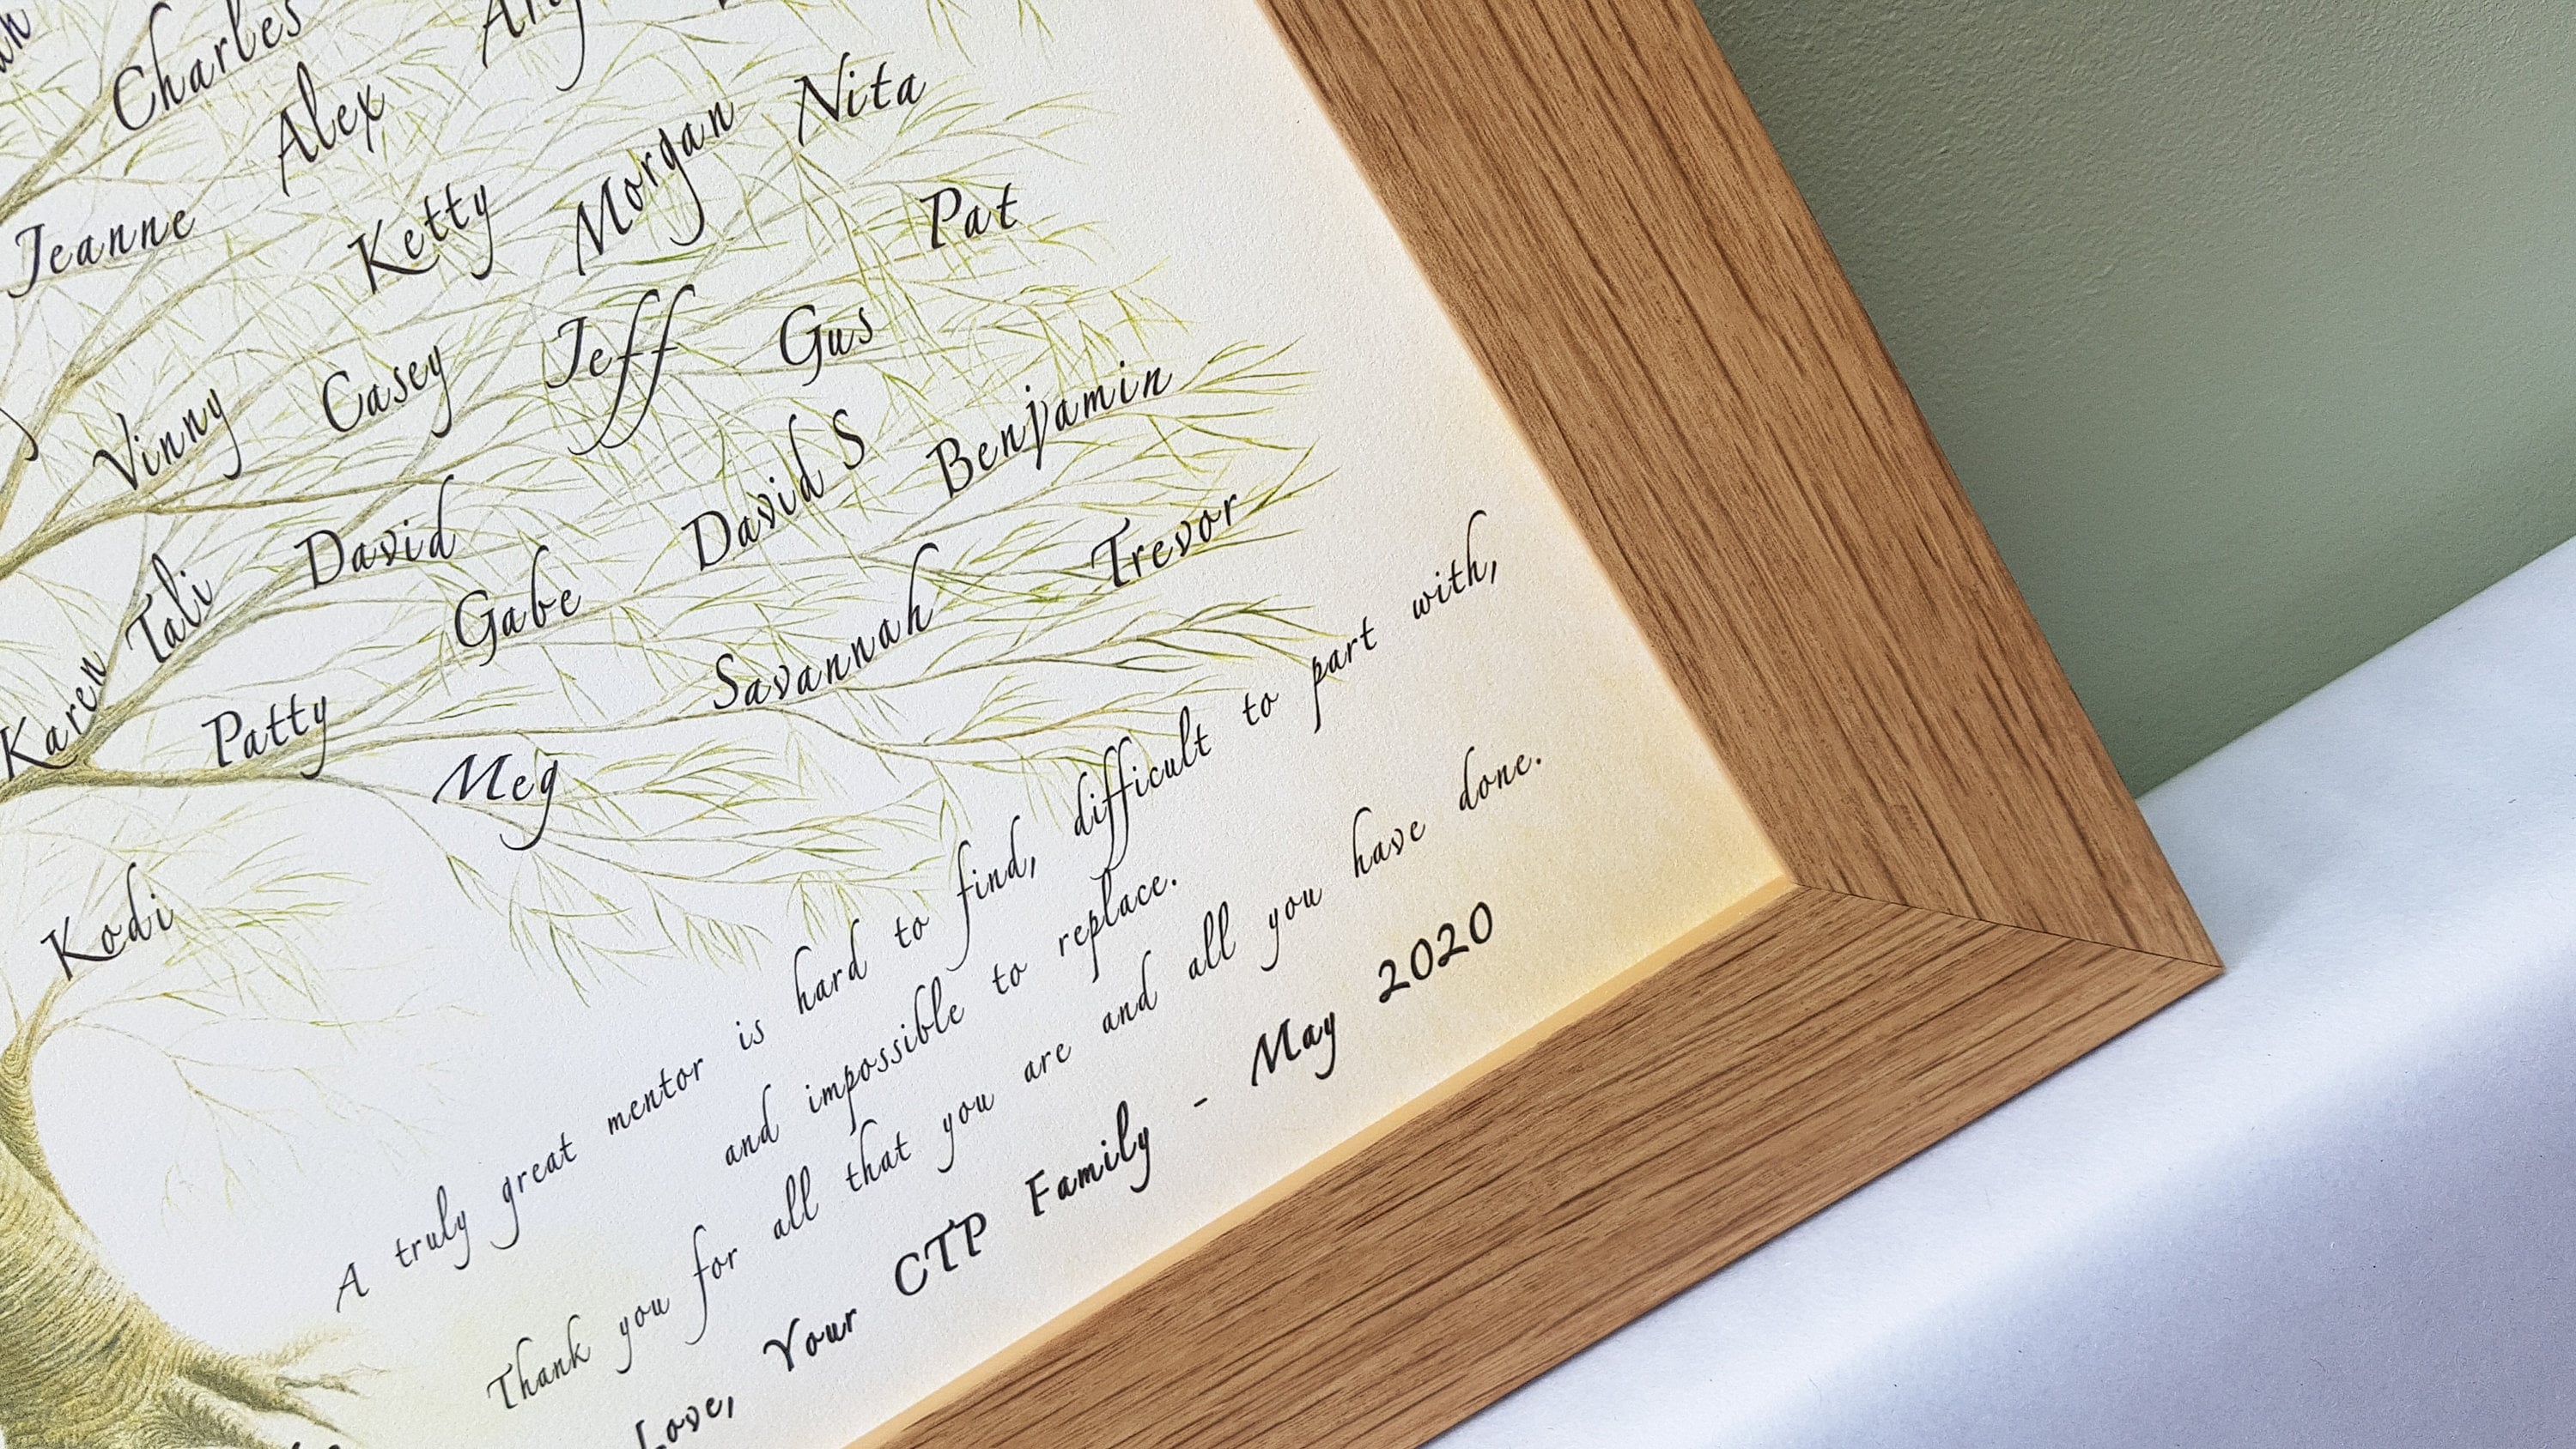 Charles
Alex
Nita
Jeanne
Ketty
Morgan
Pat
Vinny
Casey
Jeff
Gus
Karen
Tali
David
Gabe
David S
Benjamin
Patty
Meg
Savannah
Trevor
Kodi
A truly great mentor is hard to find, difficult to part with,
and impossible to replace.
Thank you for all that you are and all you have done.
Love, Your CTP Family - May 2020